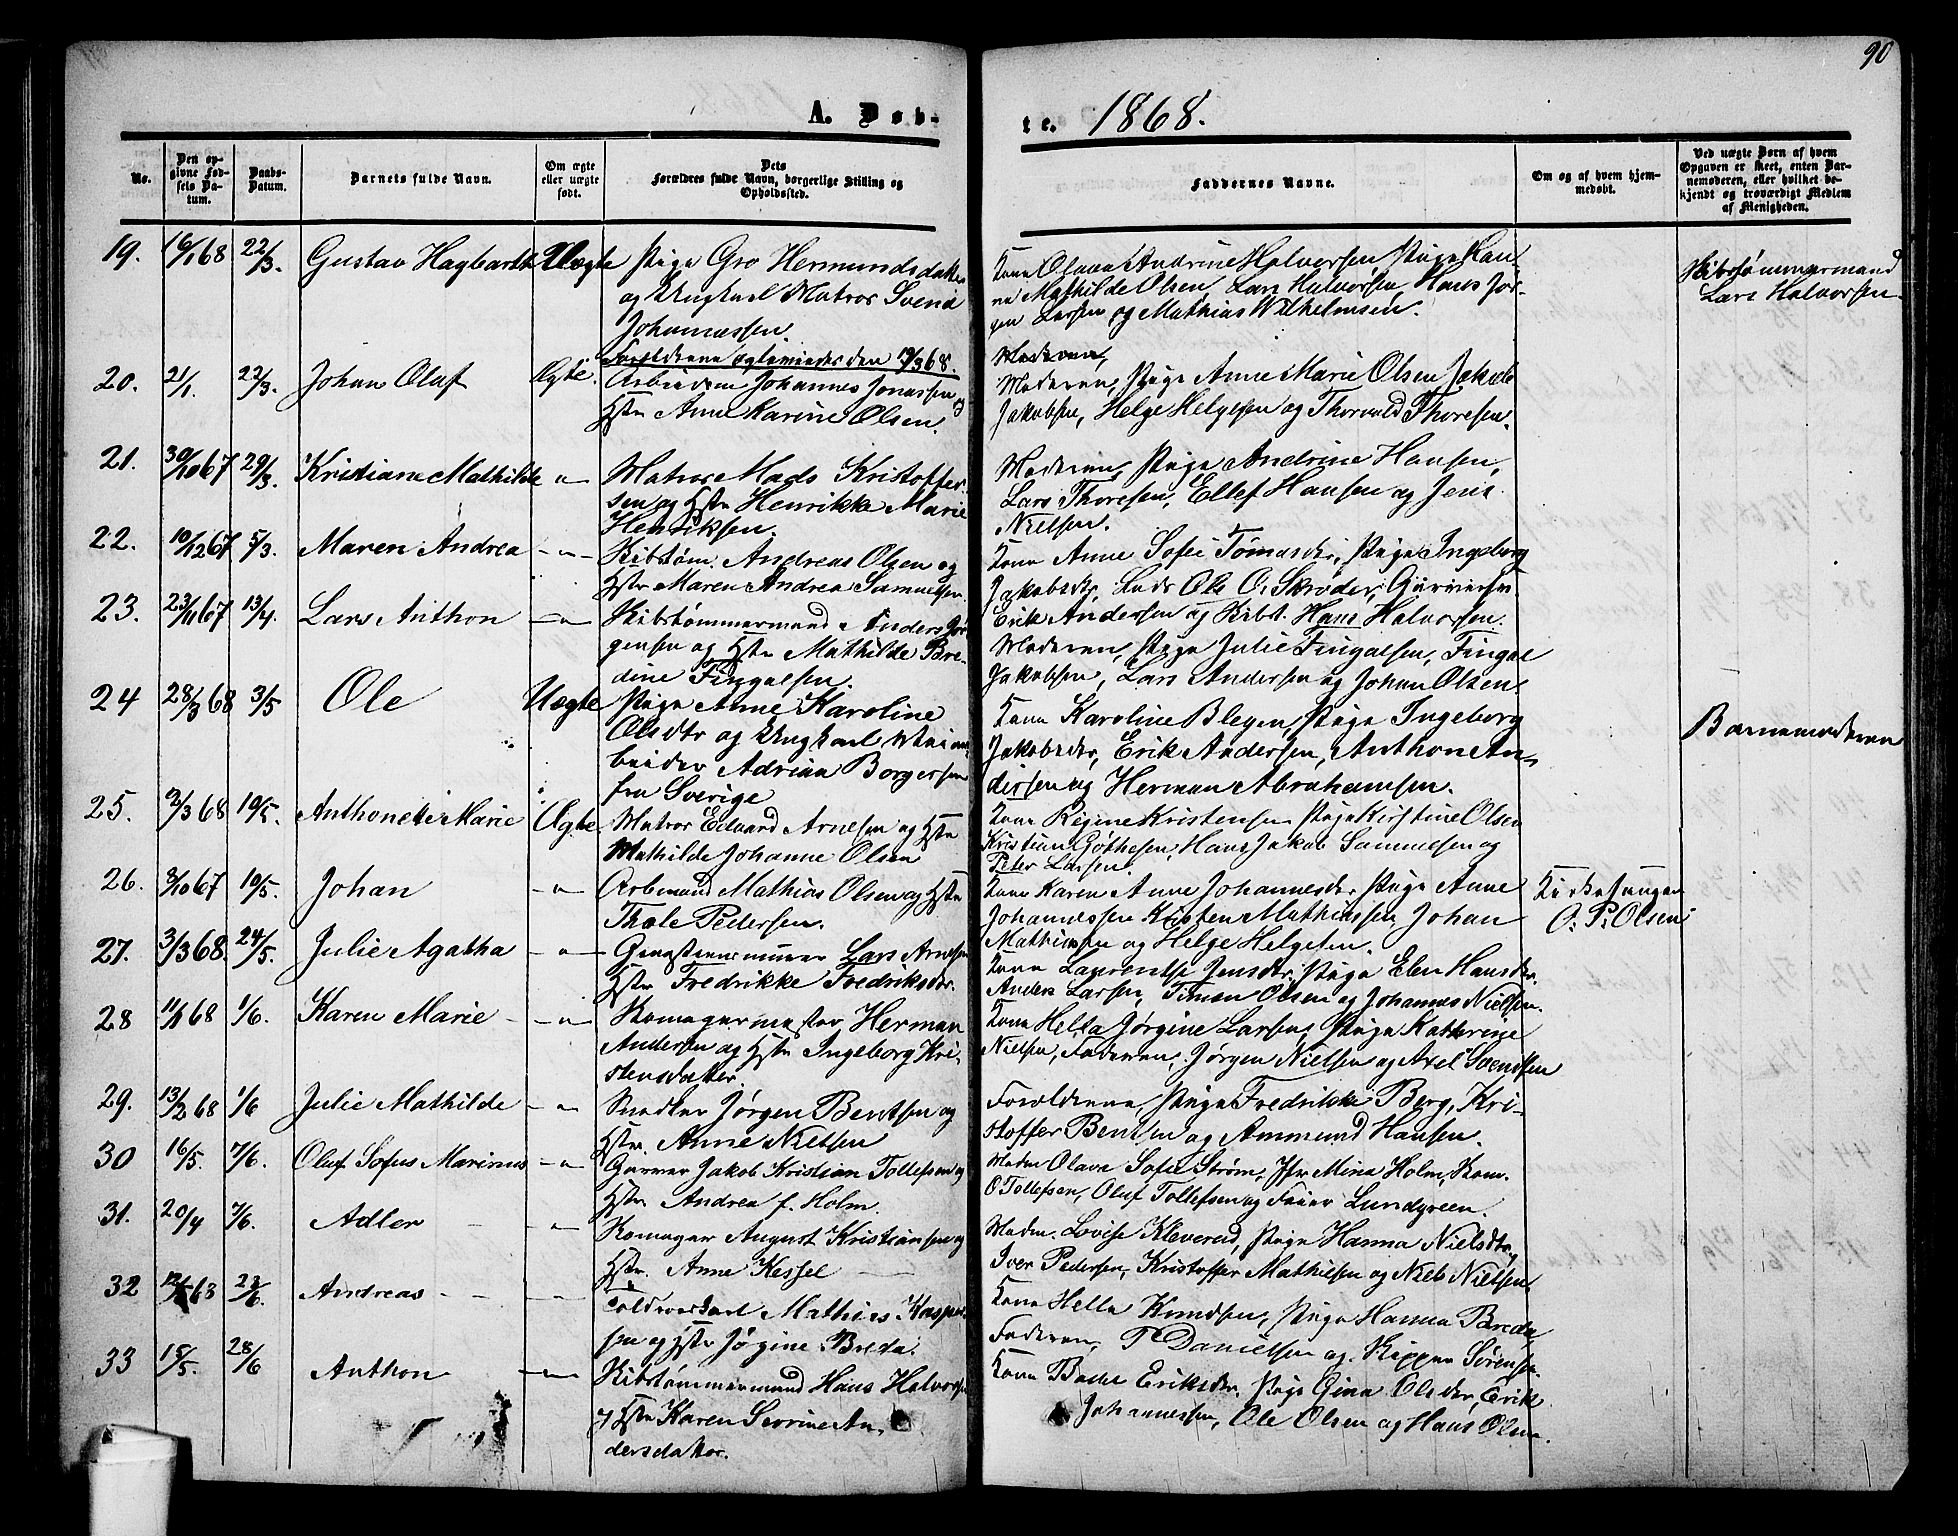 90
A. Døb-
te. 1868.
No.
Den op-
givne Fød-
sels Da-
tum.
Daabs-
Datum.
Barnets fulde Navn.
Om ægte
eller uægte
født.
Dets
Forældres fulde Navn, borgerlige Stilling og
Opholdssted.
Faddernes Navne.
Om og af hvem hjem-
medøbt.
Ved uægte Børn af hvem
Opgaven er skeet, enten Bar-
nemoderen, eller hvilket be-
kjendt og troværdigt Medlem
af Menigheden.
19. 16/1 68 22/3. Gustav Hagbarth Uægte Pige Gro Hermundsdatter
og Ungkarl Matros Svend
Johannessen.
Kone Olava Andrine Halvorsen Pige Han-
na Mathilde Olsen, Lars Halvorsen, Hans Jør-
gen Larsen og Mathias Wilhelmsen.
Skibstømmermand
Lars Halvorsen.
Forældrene ægteviedes den 19/3 68.
20. 21/1. 22/3. Johan Olaf Ægte. Arbeidsm Johannes Jonassen og
Hstr Anne Karine Olsen.
Moderen,
Moderen, Pige Anne Marie Olsen Jakob
Jakobsen, Helge Helgesen og Thorvald Thoresen.
21. 30/10 67 29/3. Kristiane Mathilde -"- Matros Mads Kristoffer-
sen og Hstr Henrikke Marie
Henriksen.
Moderen, Pige Andrine Hansen,
Lars Thoresen, Ellef Hansen og Jens
Nielsen.
22. 10/12 67 5/3. Maren Andrea -"- Skibstøm. Andreas Olsen og
Hstr Maren Andrea Samuelsen.
Kone Anne Sofie Tomasdtr, Pige Ingeborg
Jakobsdtr, Lods Ole O. Skrøder, Garversv.
Erik Andersen og Skibst. Hans Halvorsen.
23. 23/11 67 13/4. Lars Anthon -"- Skibstømmermand Anders Jør-
gensen og Hstr Mathilde Bre-
dine Fingalsen.
Moderen, Pige Julie Fingalsen, Fingal
Jakobsen, Lars Andersen og Johan Olsen.
24 28/3 68 3/5 Ole Uægte Pige Anne Karoline
Olsdtr og Ungkarl Minear-
beider Adrian Borgersen
fra Sverige
Kone Karoline Blegen, Pige Ingeborg
Jakobsdtr, Erik Andersen, Anthon An-
dersen og Herman Abrahamsen.
Barnemoderen
25. 2/3 68 10/5. Anthonette Marie Ægte Matros Edvard Arnesen og Hstr
Mathilde Johanne Olsen
Kone Regine Kristensen Pige Kirstine Olsen
Kristian Gøthesen, Hans Jakob Samuelsen og
Peter Larsen.
26. 3/10 67 10/5. Johan -"- Arbmand Mathias Olsen og Hstr
Thale Pedersen.
Kone Karen Anne Johannesdtr Pige Anne
Johannessen Kristen Mathiassen, Johan
Mathiassen og Helge Helgesen.
Kirkesanger
O. P. Olsen
27. 3/3 68. 24/5. Julie Agatha -"- Lars Arnesen
Hstr Fredrikke Fredriksdtr.
Kone Laurentse Jensdtr, Pige Elen Hansdtr.
Anders Larsen, Timan Olsen og Johannes Nielsen.
28 11/1 68 1/6. Karen Marie -"- Skomagermester Herman
Andersen og Hstr Ingeborg Kri-
stensdatter.
Kone Hella Jørgine Larsen, Pige Katherine
Nielsen, Faderen, Jørgen Nielsen og Axel Svendsen
29. 13/2 68 1/6 Julie Mathilde -"- Snedker Jørgen Bentsen og
Hstr. Anne Nielsen
Forældrene, Pige Fredrikke Berg, Kri-
stoffer Bentsen og Ammund Hansen.
30 16/5. 7/6. Oluf Sofus Marinus -"- Garver Jakob Kristian Tollefsen og
Hstr. Andrea f. Holm.
Madm Olava Sofie Strøm, Jfr Mina Holm,
O Tollefsen, Oluf Tollefsen og Lundgreen.
31. 20/4 7/6. Adler -"- Skomager August Kristiansen og
Hstr. Anne Kessel
Madm. Lovise Kleverud, Pige Hanna Nielsdtr,
Iver Pedersen, Kristoffer Mathiesen og Niels Nielsen
32 63 21/6. Andreas Toldroerskarl Mathias Kasper-
sen og Hstr Jørgine Breda.
Kone Hella Knudsen, Pige Hanna Breda
Faderen, T Danielsen og Skipper Sørensen.
33 15/5 28/6 Anthon -"- Skibstømmermand Hans Halvorsen
og Hstr Karen Sevrine An-
dersdatter.
Kone Eriksdtr. Pige Gina Olsdtr, Erik
Johannessen, Ole Olsen og Hans Olsen.